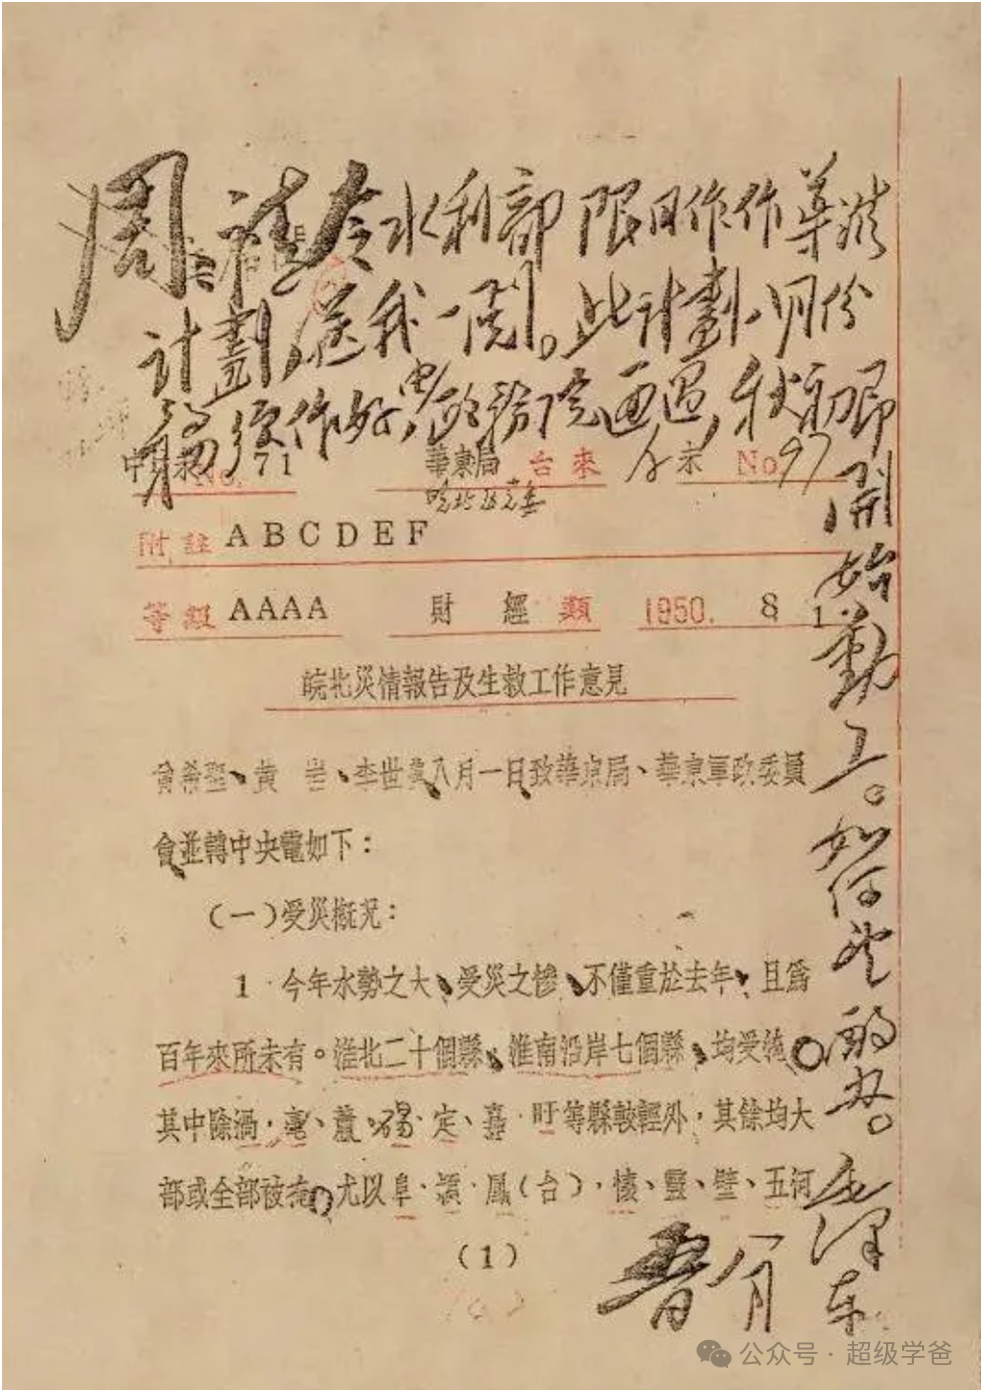 周：请令水利部限日作作导淮
计劃，送我一阅。此计劃八月份
须作好，由政務院通過，秋初即
開始動工。如何望酌办。
毛澤东
八月五日
No. 71
華東局 台來
皖北區黨委
No 97
附註 ABCDEF
等級 AAAA 財 經 類 1950. 8 1
皖北災情報告及生救工作意見
曾希聖、黄 岩、李世農八月一日致華東局、華東軍政委員
會並轉中央電如下：
（一）受災概况：
1 今年水勢之大、受災之慘、不僅重於去年，且爲
百年來所未有。淮北二十個縣、淮南沿岸七個縣，均受淹。
其中除渦，亳、蕭、碭、定、嘉、盱等縣較輕外，其餘均大
部或全部被淹。尤以阜、潁、鳳（台），懷、靈、璧、五河
(1)
公众号 · 超级学爸